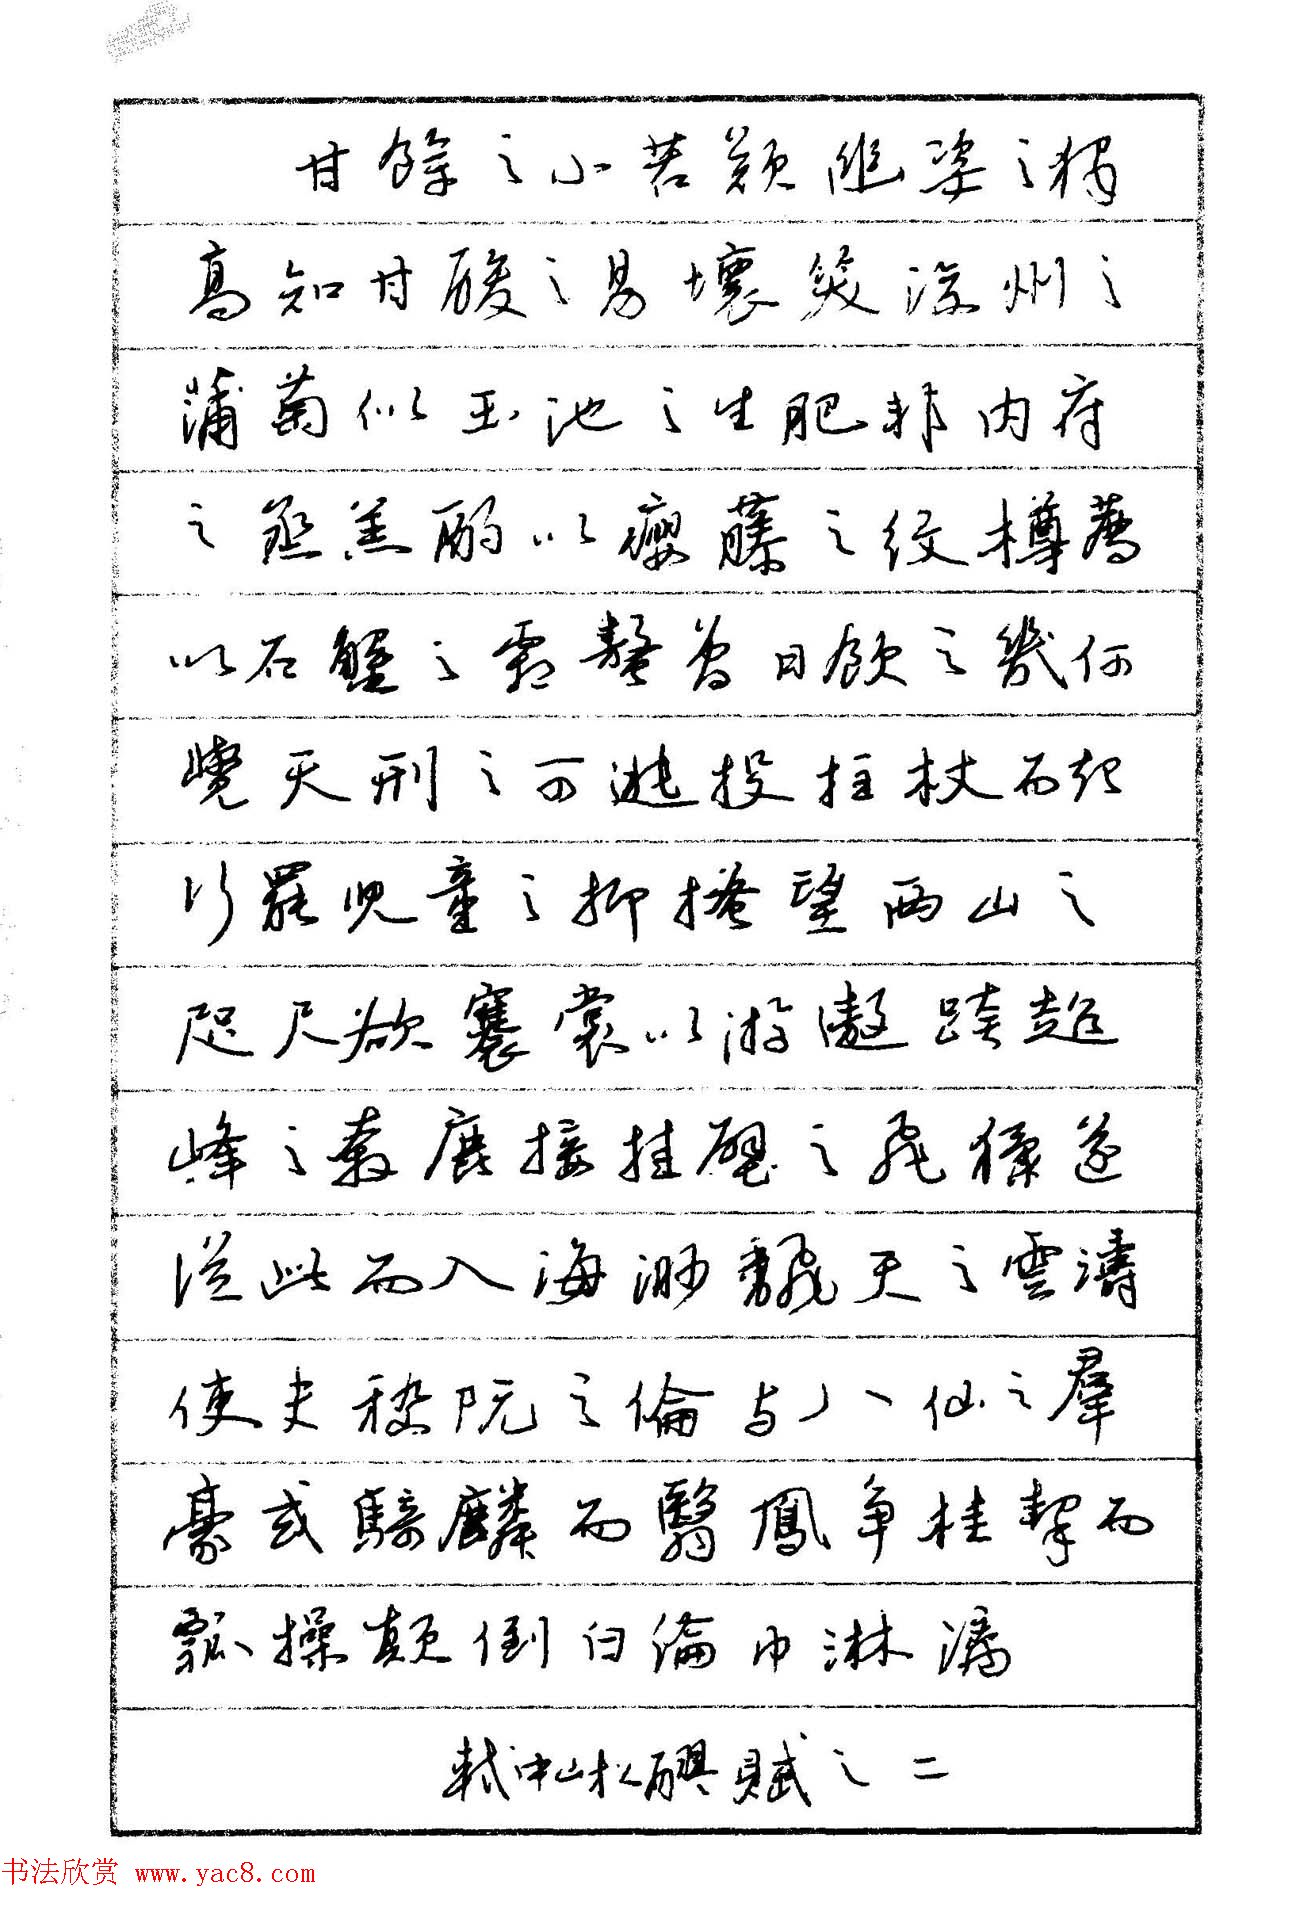 甘餘之小苦歎幽姿之獨
高知甘酸之易壞笑涼州之
蒲萄似玉池之生肥非内府
之烝羔酌以癭藤之纹樽薦
以石蟹之霜螯曾日飲之幾何
覺天刑之可逃投拄杖而起
行罷兒童之抑搔望西山之
咫尺欲褰裳以游遨跨超
峰之奔鹿接挂壁之飛猱遂
從此而入海渺翻天之雲濤
使夫嵇阮之倫与八仙之羣
豪或騎麟而翳鳳争榼挈而
瓢操颠倒白綸巾淋漓
軾中山松醪賦之二
书法欣赏 www.yac8.com